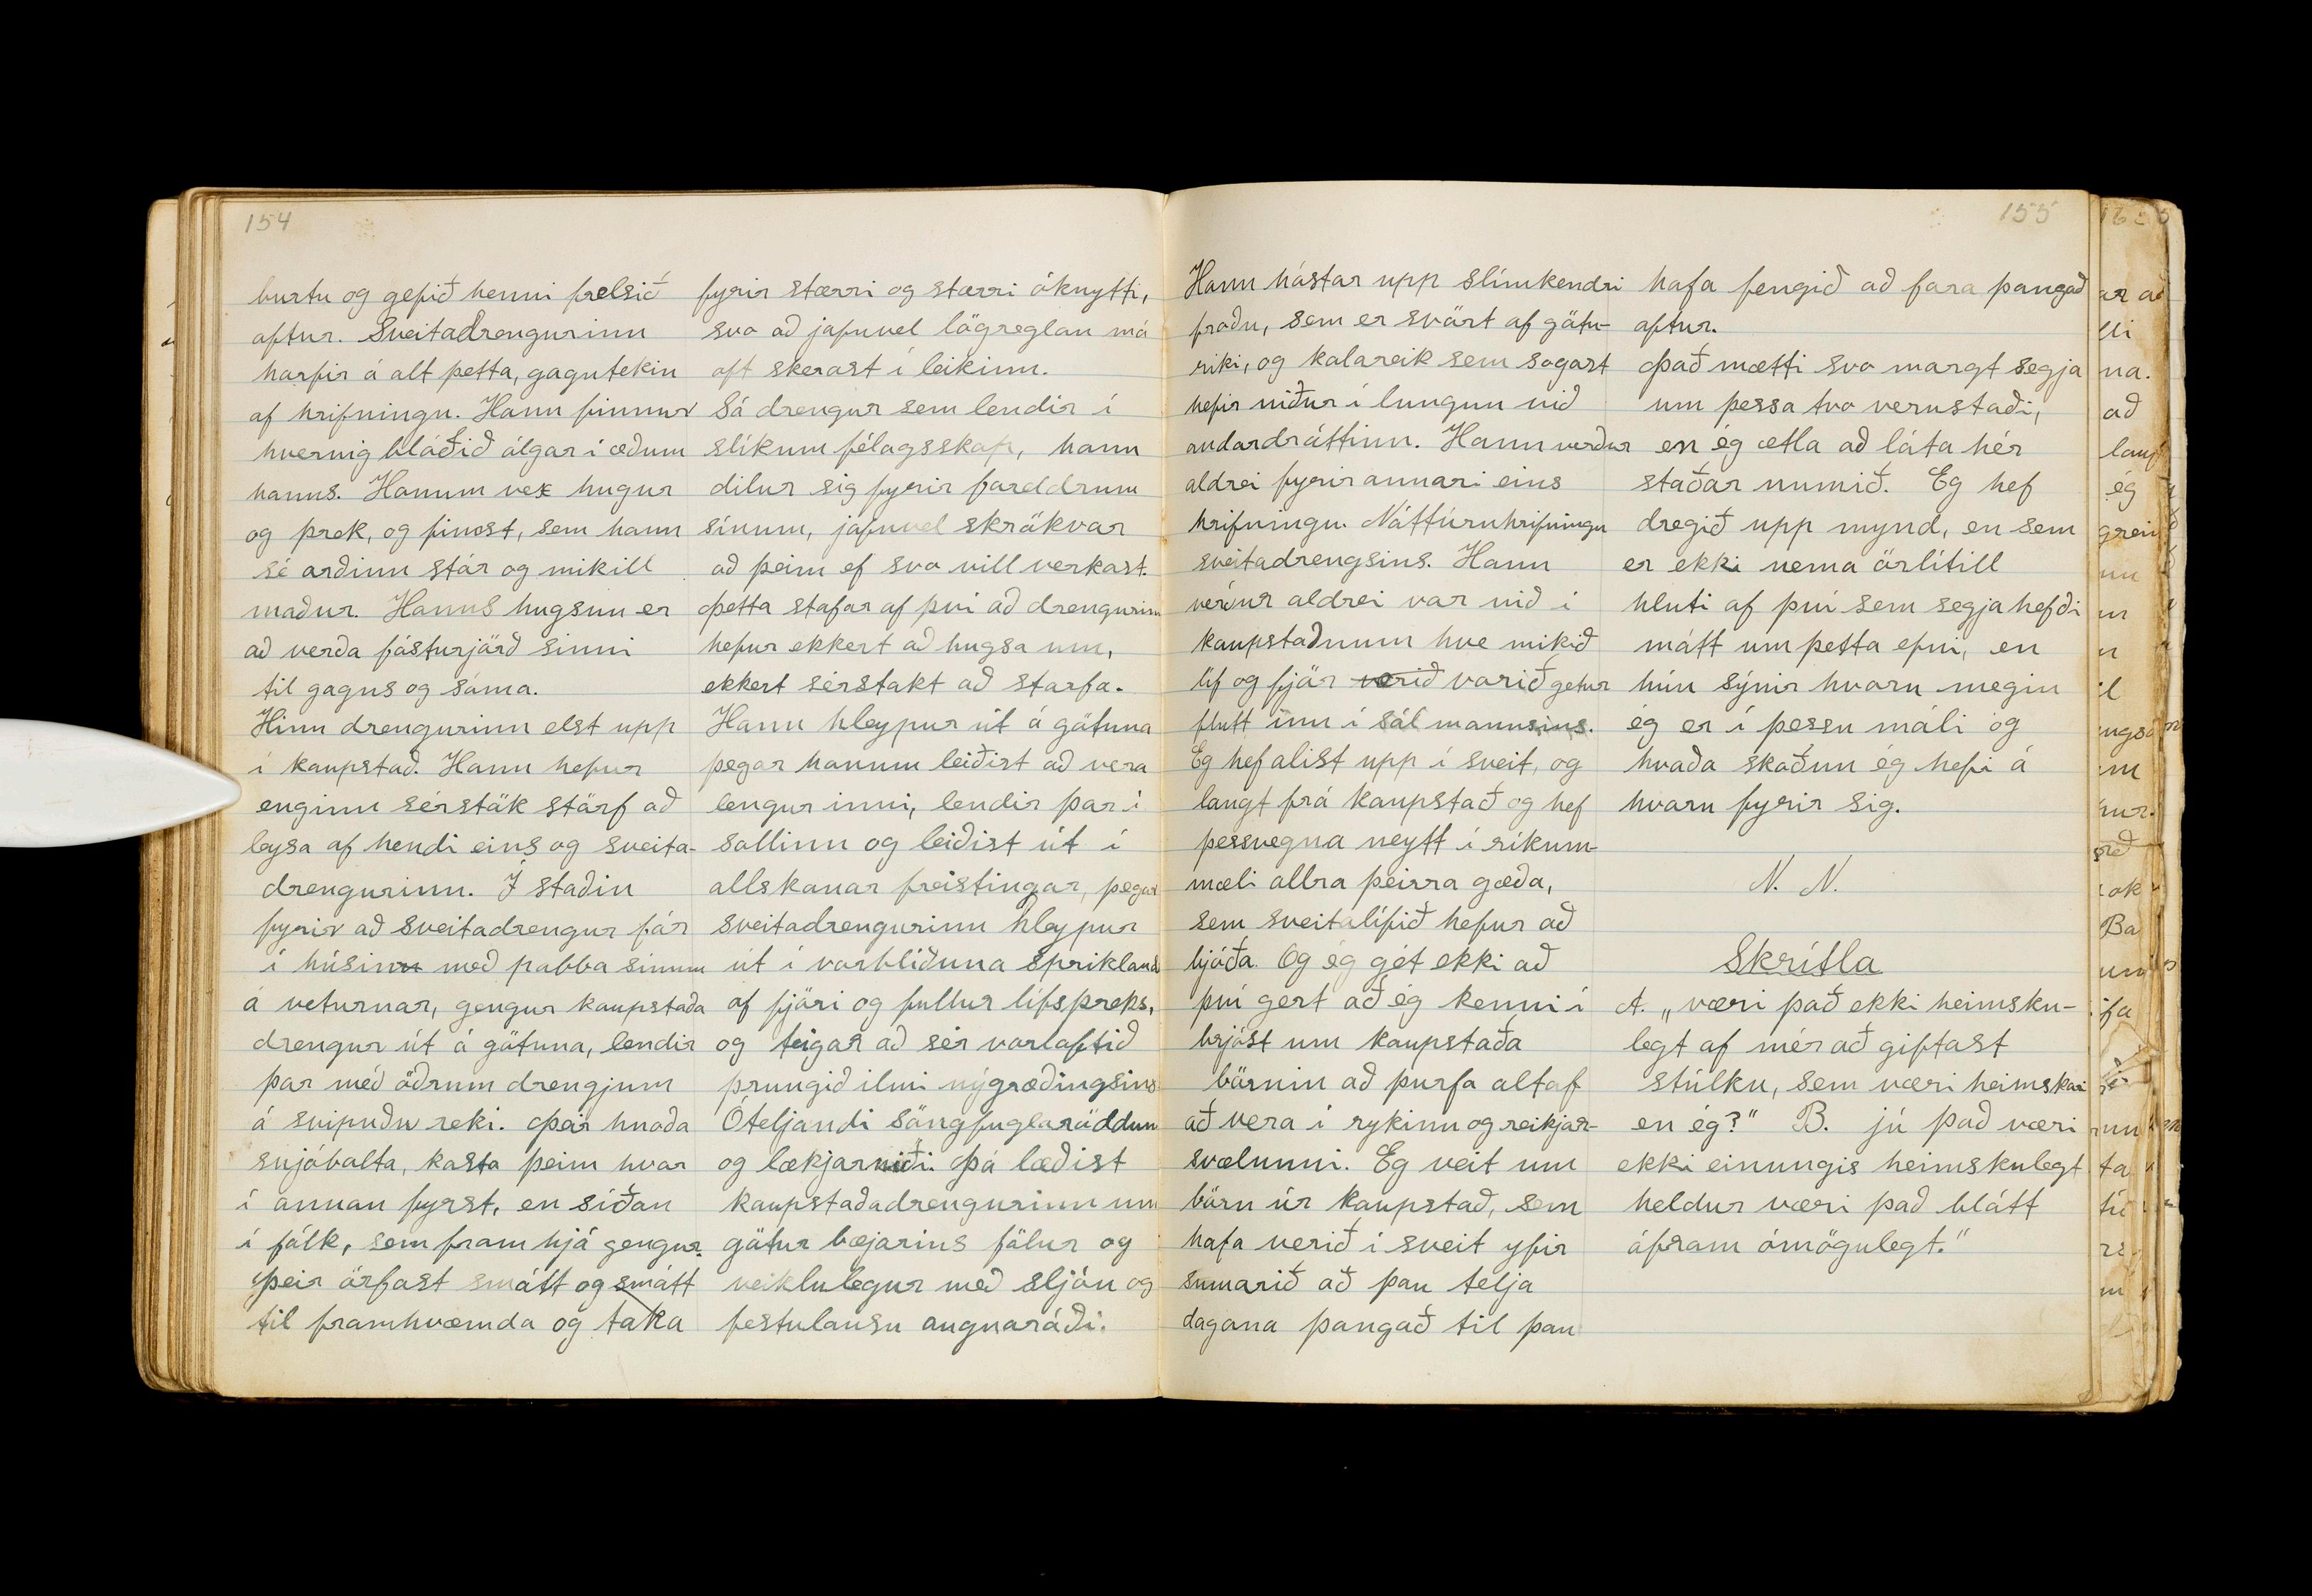 154
burtu og gefið henni frelsið
aftur. Sveitadrengurinn
harfir á alt þetta, gagntekin
af hrifningu. Hann finnur
hvernig blóðið ólgar í æðum
hanns. Honum vex hugur
og þrek, og finost, sem hann
sé orðinn stór og mikill
maður. Hanns hugsun er
að verða fósturjörð sinni
til gagns og sóma.
Hinn drengurinn elst upp
í kaupstað. Hann hefur
enginn sérstök störf að
leysa af hendi eins og sveita-
drengurinn. Í staðin
fyrir að sveitadrengur fór
í húsinn með pabba sínum
á veturnar, gengur kaupstaða
drengur út á götuna, lendir
þar með öðrum drengjum
á svipuðu reki. Þeir hnoða
snjóbolta, kasta þeim hvor
í annan fyrst, en síðan
í fólk, som fram hjá gengur.
Þeir örfast smátt og smátt
til framhvæmda og taka
fyrir stærri og stærri óknytti,
svo að jafnvel lögreglan má
oft skerast í leikinn.
Sá drengur sem lendir í
slíkum félagsskap, hann
dilur sig fyrir forddrum
sínum, jafnvel skrökvar
að þeim ef svo vill verkast.
Þetta stafar af því að drengurinn
hefur ekkert að hugsa um,
ekkert sérstakt að starfa.
Hann hleypur út á götuna
þegar honum leiðist að vera
lengur inni, lendir þar í
sollinn og leiðist út í
allskonar freistingar, þegar
sveitadrengurinn hleypur
út í vorblíðuna sprikland
af fjöri og fullur lífsþreks,
og teigar að sér vorloftið
þrungið ilmi nýgræðingsins
Óteljandi söngfuglaröddum
og lækjarniði. Þá læðist
kaupstaðadrengurinn um
götur bæjarins fölur og
veiklulegur með sljóu og
festulausu augnaráði.
155
Hann hóstar upp slímkendri
froðu, sem er svört af götu-
riki, og kolareik sem sogast
hefir niður í lungun við
andardráttinn. Hann verður
aldrei fyrir annari eins
hrifningu. Náttúruhrifningu
sveitadrengsins. Hann
verður aldrei var við í
kaupstaðnum hve mikið
líf og fjör verið varið getur
flutt inn í sál mannsins.
Eg hef alist upp í sveit, og
langt frá kaupstað og hef
þessvegna neytt í ríkum-
mæli allra þeirra gæða,
sem sveitalífið hefur að
bjóða. Og ég gét ekki að
því gert að ég kenni í
brjóst um kaupstaða
börnin að þurfa altaf
að vera í rykinu og reikjar-
svælunni. Eg veit um
börn úr kaupstað, sem
hafa verið í sveit yfir
sumarið að þau telja
dagana þangað til þau
hafa fengið að fara þangað
aftur.
Það mætti svo margt segja
um þessa tvo verustaði,
en ég ætla að láta hér
staðar numið. Eg hef
dregið upp mynd, en sem
er ekki nema örlítill
hluti af því sem segja hefði
mátt um þetta efni, en
hún sýnir hvoru megin
ég er í þessu máli og
hvaða skoðun ég hefi á
hvoru fyrir sig.
N. N.
Skrítla
A. „væri það ekki heimsku-
legt af mér að giftast
stúlku, sem væri heimskari
en ég?" B. jú það væri
ekki einungis heimskulegt
heldur væri það blátt
áfram ómögulegt."